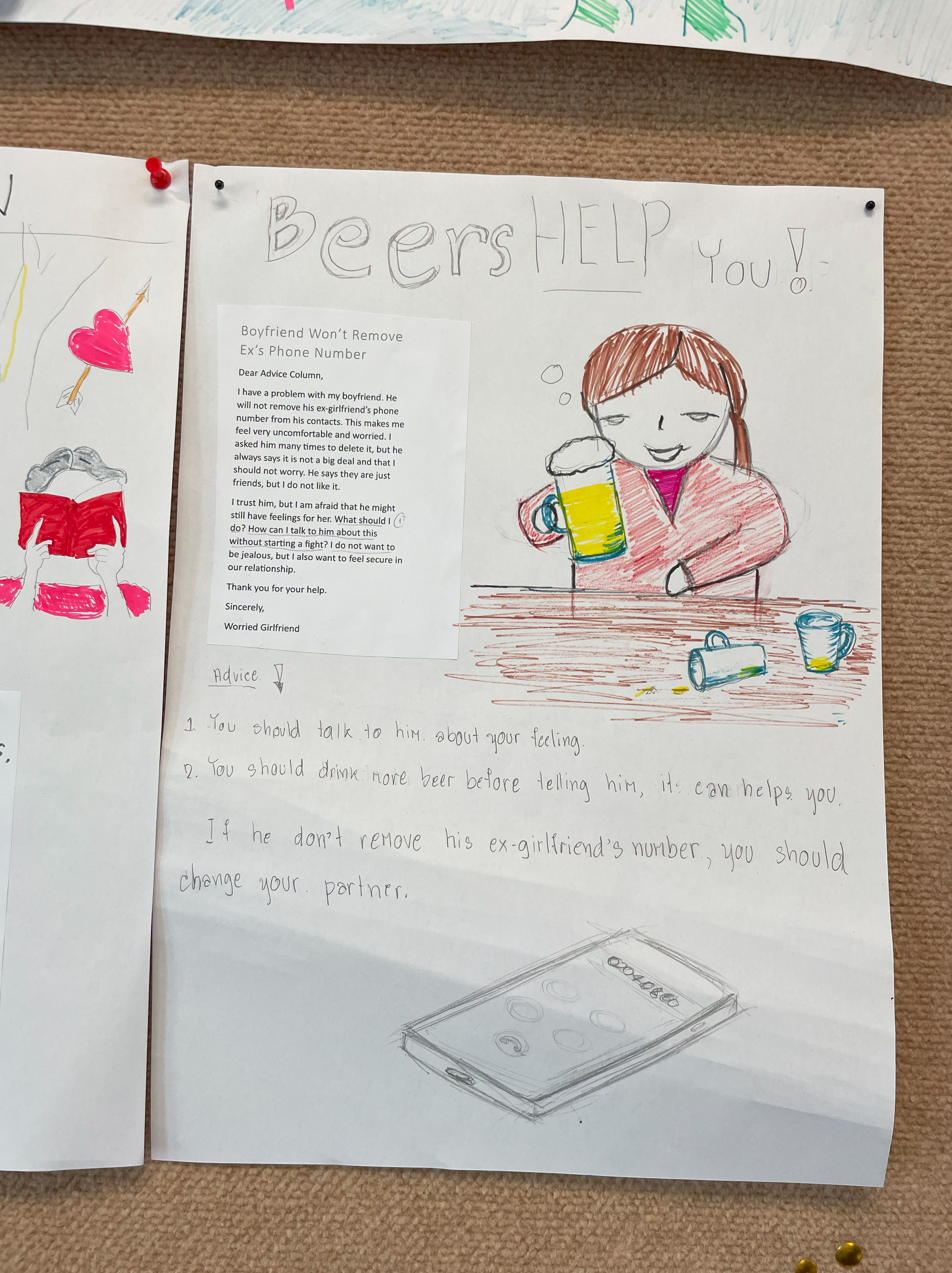 Beers HELP You!
Boyfriend Won't Remove
Ex's Phone Number
Dear Advice Column,
I have a problem with my boyfriend. He
will not remove his ex-girlfriend's phone
number from his contacts. This makes me
feel very uncomfortable and worried. I
asked him many times to delete it, but he
always says it is not a big deal and that I
should not worry. He says they are just
friends, but I do not like it.
I trust him, but I am afraid that he might
still have feelings for her. What should I
do? How can I talk to him about this
without starting a fight? I do not want to
be jealous, but I also want to feel secure in
our relationship.
Thank you for your help.
Sincerely,
Worried Girlfriend
Advice
1. You should talk to him about your feeling.
2. You should drink more beer before telling him, it can helps you.
If he don't remove his ex-girlfriend's number, you should
change your partner.